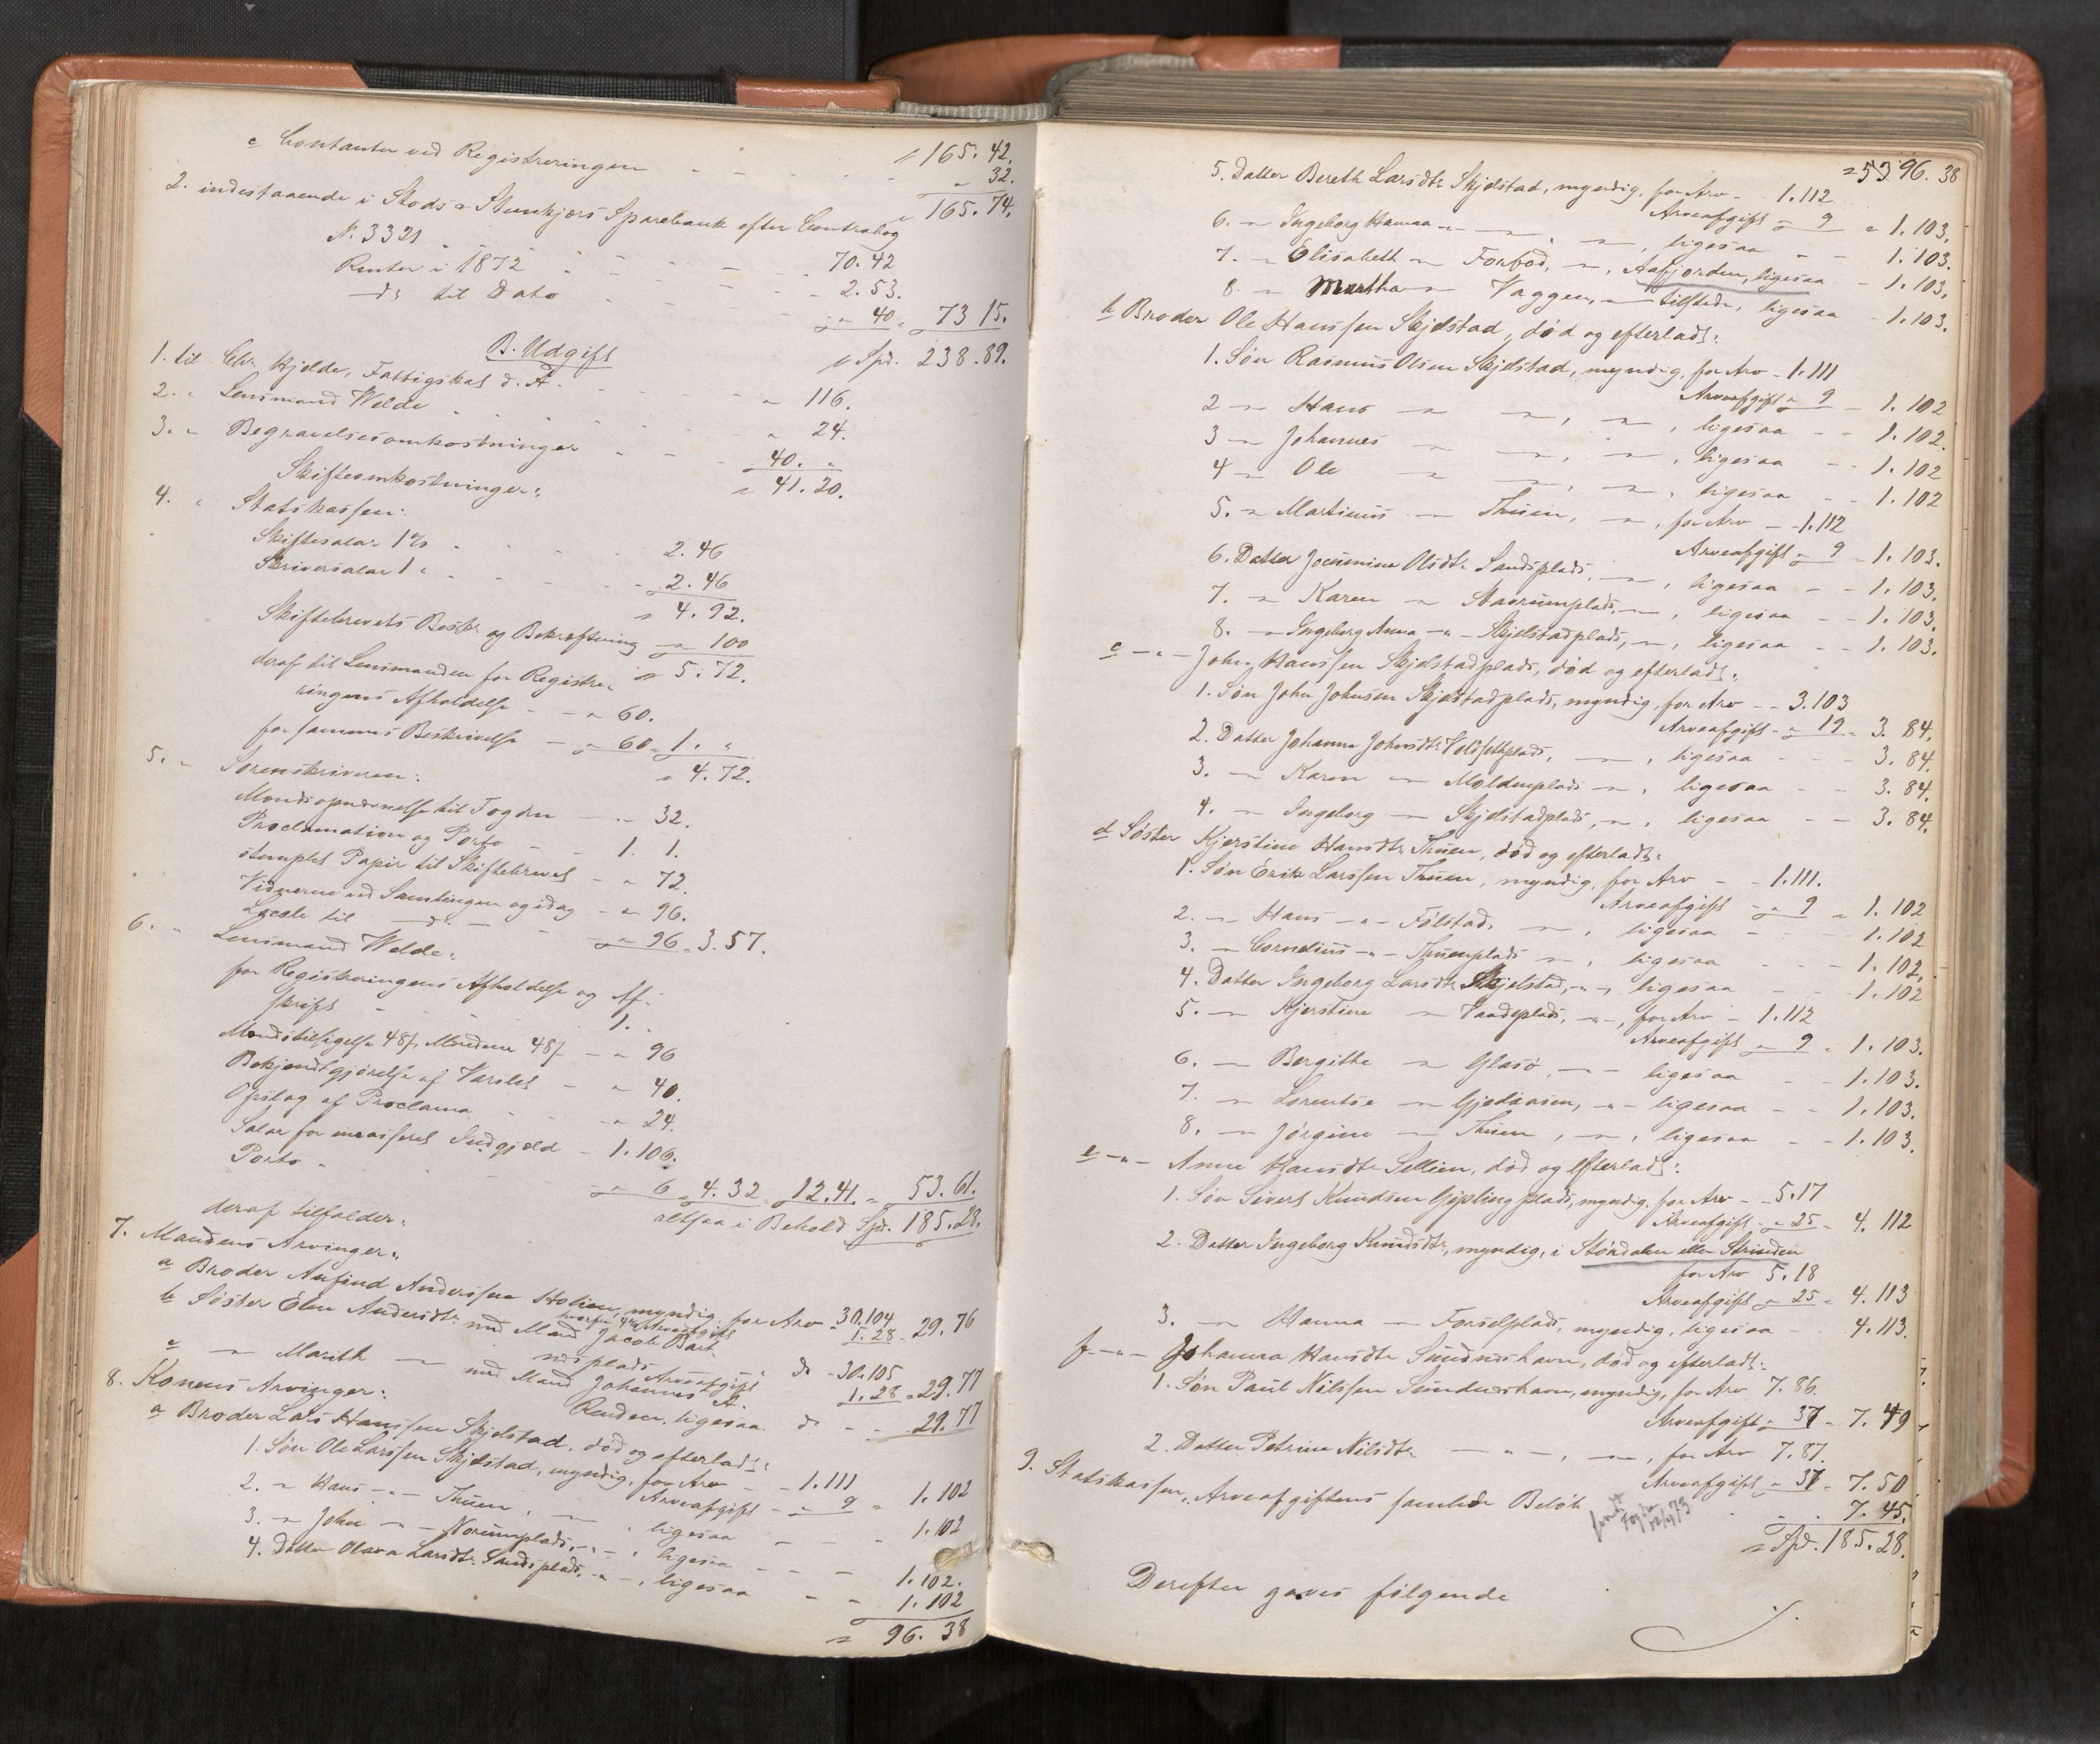 165. 42.
c Contanter ved Registreringen - - - - " 32.
" 165. 74.
2. indestaaende i Stods & Stenkjærs Sparebank efter Contrabog
N. 3321 - - - 70. 42
Renter i 1872 - - - 2. 53.
ds til Dato - - - " 40 " 73 15.
Spd. 238. 89.
B. Udgift
1. til Chr. Hjelde, Fattigskat d. A. - - " 116.
2. " Lensmand Welde - - " 24.
3. " Begravelsesomkostninger - - 40. "
" 41. 20.
Skifteomkostninger:
4. " Statskassen:
Skiftesalær 1% - - 2. 46
Skriversalær 1 " - - 2. 46
" 4. 92.
Skiftebrevets Beskr og Bekræftning " 100
" 5. 72.
deraf til Lensmanden for Registre-
ringens Afholdelse - - " 60.
for sammes Beskrivelse - " 60 " 1. "
" 4. 72.
5. " Sorenskriveren:
Mændsopnævnelse til Fogden - " 32.
Proclamation og Porto - - 1. 1.
stemplet Papir til Skiftebrevet - " 72.
Vidnerne ved Samlingen og idag - " 96.
Locale til - ds - - " 96 " 3. 57.
6. " Lensmand Welde:
for Registreringens Afholdelse og Af-
skrift - - - 1. "
Mændstilsigelse 48 s, Mændene 48 s - " 96
Bekjendtgjørelse af Varslet - " 40.
Opslag af Proclama - - " 24.
Salær for incasseret Indgjæld - 1. 106.
Porto - - - " 6 " 4. 32 " 12. 41. " 53. 61.
altsaa i Behold Spd. 185. 28.
deraf tilfalder:
7. Mandens Arvinger:
a Broder Anfind Anderssen Holien, myndig, for Arv - 30. 104
hvorfra 4% Arveafgift 1. 28 " 29. 76
b Søster Elen Andersdtr med Mand Jacob
plads ds - 30. 105
Arveafgift 1. 28 " 29. 77
c " Marith " med Mand Johannes A.
ligesaa ds - - 29. 77
8. Konens Arvinger:
a Broder Lars Hanssen Skjelstad, død og efterladt:
1. Søn Ole Larssen Skjelstad, myndig, for Arv - 1. 111
Arveafgift - " 9 " 1. 102
2. " Hans " Thuen, " , ligesaa - - 1. 102
3. " John " Norumplads, " , ligesaa - - 1. 102.
4. Datter Olava Larsdtr Sandsplads, " , ligesaa - - 1. 102
" 96. 38
" 53 96. 38
5. Datter Bereth Larsdtr Skjelstad, myndig, for Arv - 1. 112
Arveafgift " 9 " 1. 103.
6. " Ingeborg Hanna " " , " , ligesaa - - 1. 103.
7. " Elisabeth " Forbod, " , Aafjorden, ligesaa - 1. 103.
8. " Martha " Vaggen, " tilstede, ligesaa - 1. 103.
b Broder Ole Hanssen Skjelstad, død og efterladt:
1. Søn Rasmus Olsen Skjelstad, myndig, for Arv - 1. 111
Arveafgift " 9 - 1. 102
2 " Hans " " , " , ligesaa - - 1. 102.
3 " Johannes " " , " , ligesaa - - 1. 102
4 " Ole " " , " , ligesaa - - 1. 102
5. " Martinus " Thuen, " , for Arv - 1. 112
Arveafgift " 9 - 1. 103.
6. Datter Jocumine Olsdtr Sandsplads, " , ligesaa - - 1. 103.
7. " Karen " Stavrumplads, " , ligesaa - - 1. 103.
8. " Ingeborg Anna " Skjelstadplads, " , ligesaa - - 1. 103.
c " John Hanssen Skjelstadplads, død og efterladt:
1. Søn John Johnsen Skjelstadplads, myndig, for Arv - - 3. 103
Arveafgift - " 19 " 3. 84.
2. Datter Johanna Johnsdtr plads, " , ligesaa - - 3. 84.
3. " Karen " Moldenplads " , ligesaa - - 3. 84.
4. " Ingeborg " Skjelstadplads, " , ligesaa - - 3. 84.
d Søster Kjerstine Hansdtr Thuen, død og efterladt:
1. Søn Erik Larssen Thuen, myndig, for Arv - - 1. 111.
Arveafgift - " 9 " 1. 102
2. " Hans " Følstad, " , ligesaa - - 1. 102
3. " Cornelius " Thuenplads " , ligesaa - - 1. 102.
4. Datter Ingeborg Larsdtr Skjelstad, " , ligesaa - - 1. 102
5. " Kjerstine " plads, " , for Arv - 1. 112
Arveafgift " 9 " 1. 103.
6. " Bergitte " Glasø, " - ligesaa - - 1. 103.
7. " Lorentse " Gjedaasen, " - ligesaa - - 1. 103.
8. " Jørgine " Thuen, " , ligesaa - - 1. 103.
e " Anne Hansdtr Sellien, død og efterladt:
1. Søn Sivert Knudsen Gipling plads, myndig, for Arv - 5. 17
Arveafgift " 25 " 4. 112
2. Datter Ingeborg Knudsdtr, myndig, i Størdalen eller Strinden
for Arv 5. 18
Arveafgift " 25 " 4. 113
3. " Hanna " Forselplads, myndig, ligesaa - 4. 113.
f " Johanna Hansdtr Sundneshavn, død og efterladt:
1. Søn Paul Nilssen Sundneshavn, myndig, for Arv 7. 86.
Arveafgift " 37 " 7. 49
2. Datter Petrine Nilsdtr " , " , for Arv 7. 87.
Arveafgift " 37 " 7. 50
9. Statskassen, Arveafgiftens samlede Beløb - - 7. 45.
sendt Fogden 12/4 73
Spd. 185. 28.
Derefter gaves følgende